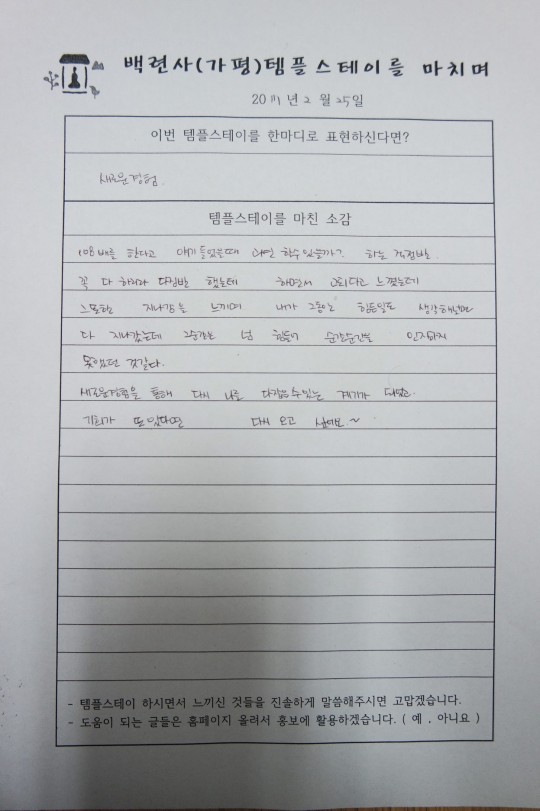 백련사(가평)템플스테이를 마치며
20 년 2 월 25일
이번 템플스테이를 한마디로 표현하신다면?
새로운경험.
템플스테이를 마친 소감
108배를 한다고 얘기 들었을때 과연 할수있을까? 하는 걱정반
꼭 다 하리라 다짐반 했는데 하면서 느꼈는데
지나감을 느끼며 내가 그동안 힘든일도 생각해보면
다 지나갔는데 그순간은 넘 힘들어 순간순간을 인지하지
못했던 것같다.
새로운경험을 통해 다시 나를 다잡을수있는 계기가 되었고.
기회가 또 있다면 다시 오고 싶어요~
- 템플스테이 하시면서 느끼신 것들을 진솔하게 말씀해주시면 고맙겠습니다.
- 도움이 되는 글들은 홈페이지 올려서 홍보에 활용하겠습니다. ( 예 , 아니요 )